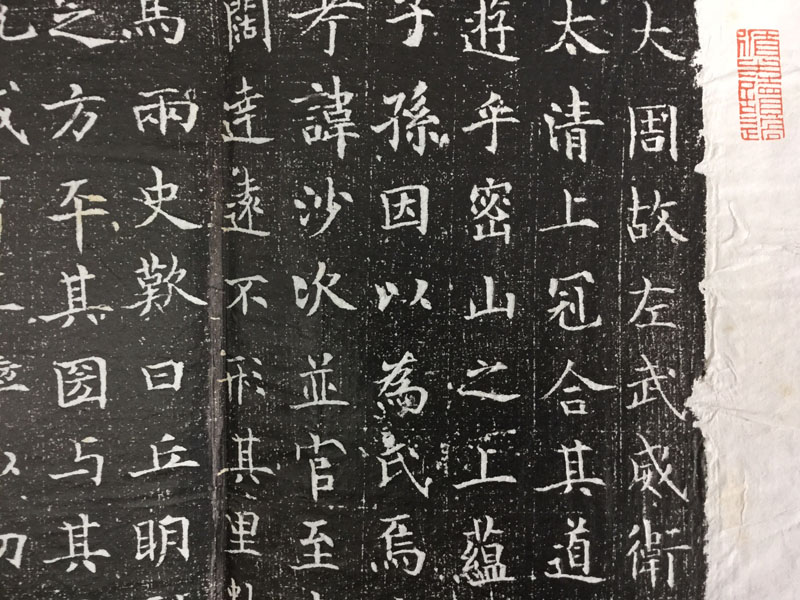 大周故左武威衛
太清上冠合其道
遊乎密山之上蘊
子孫因以為氏焉
諱沙次並官至
闊達遠不形其里
馬兩史歎曰丘明
之方平其圀与其